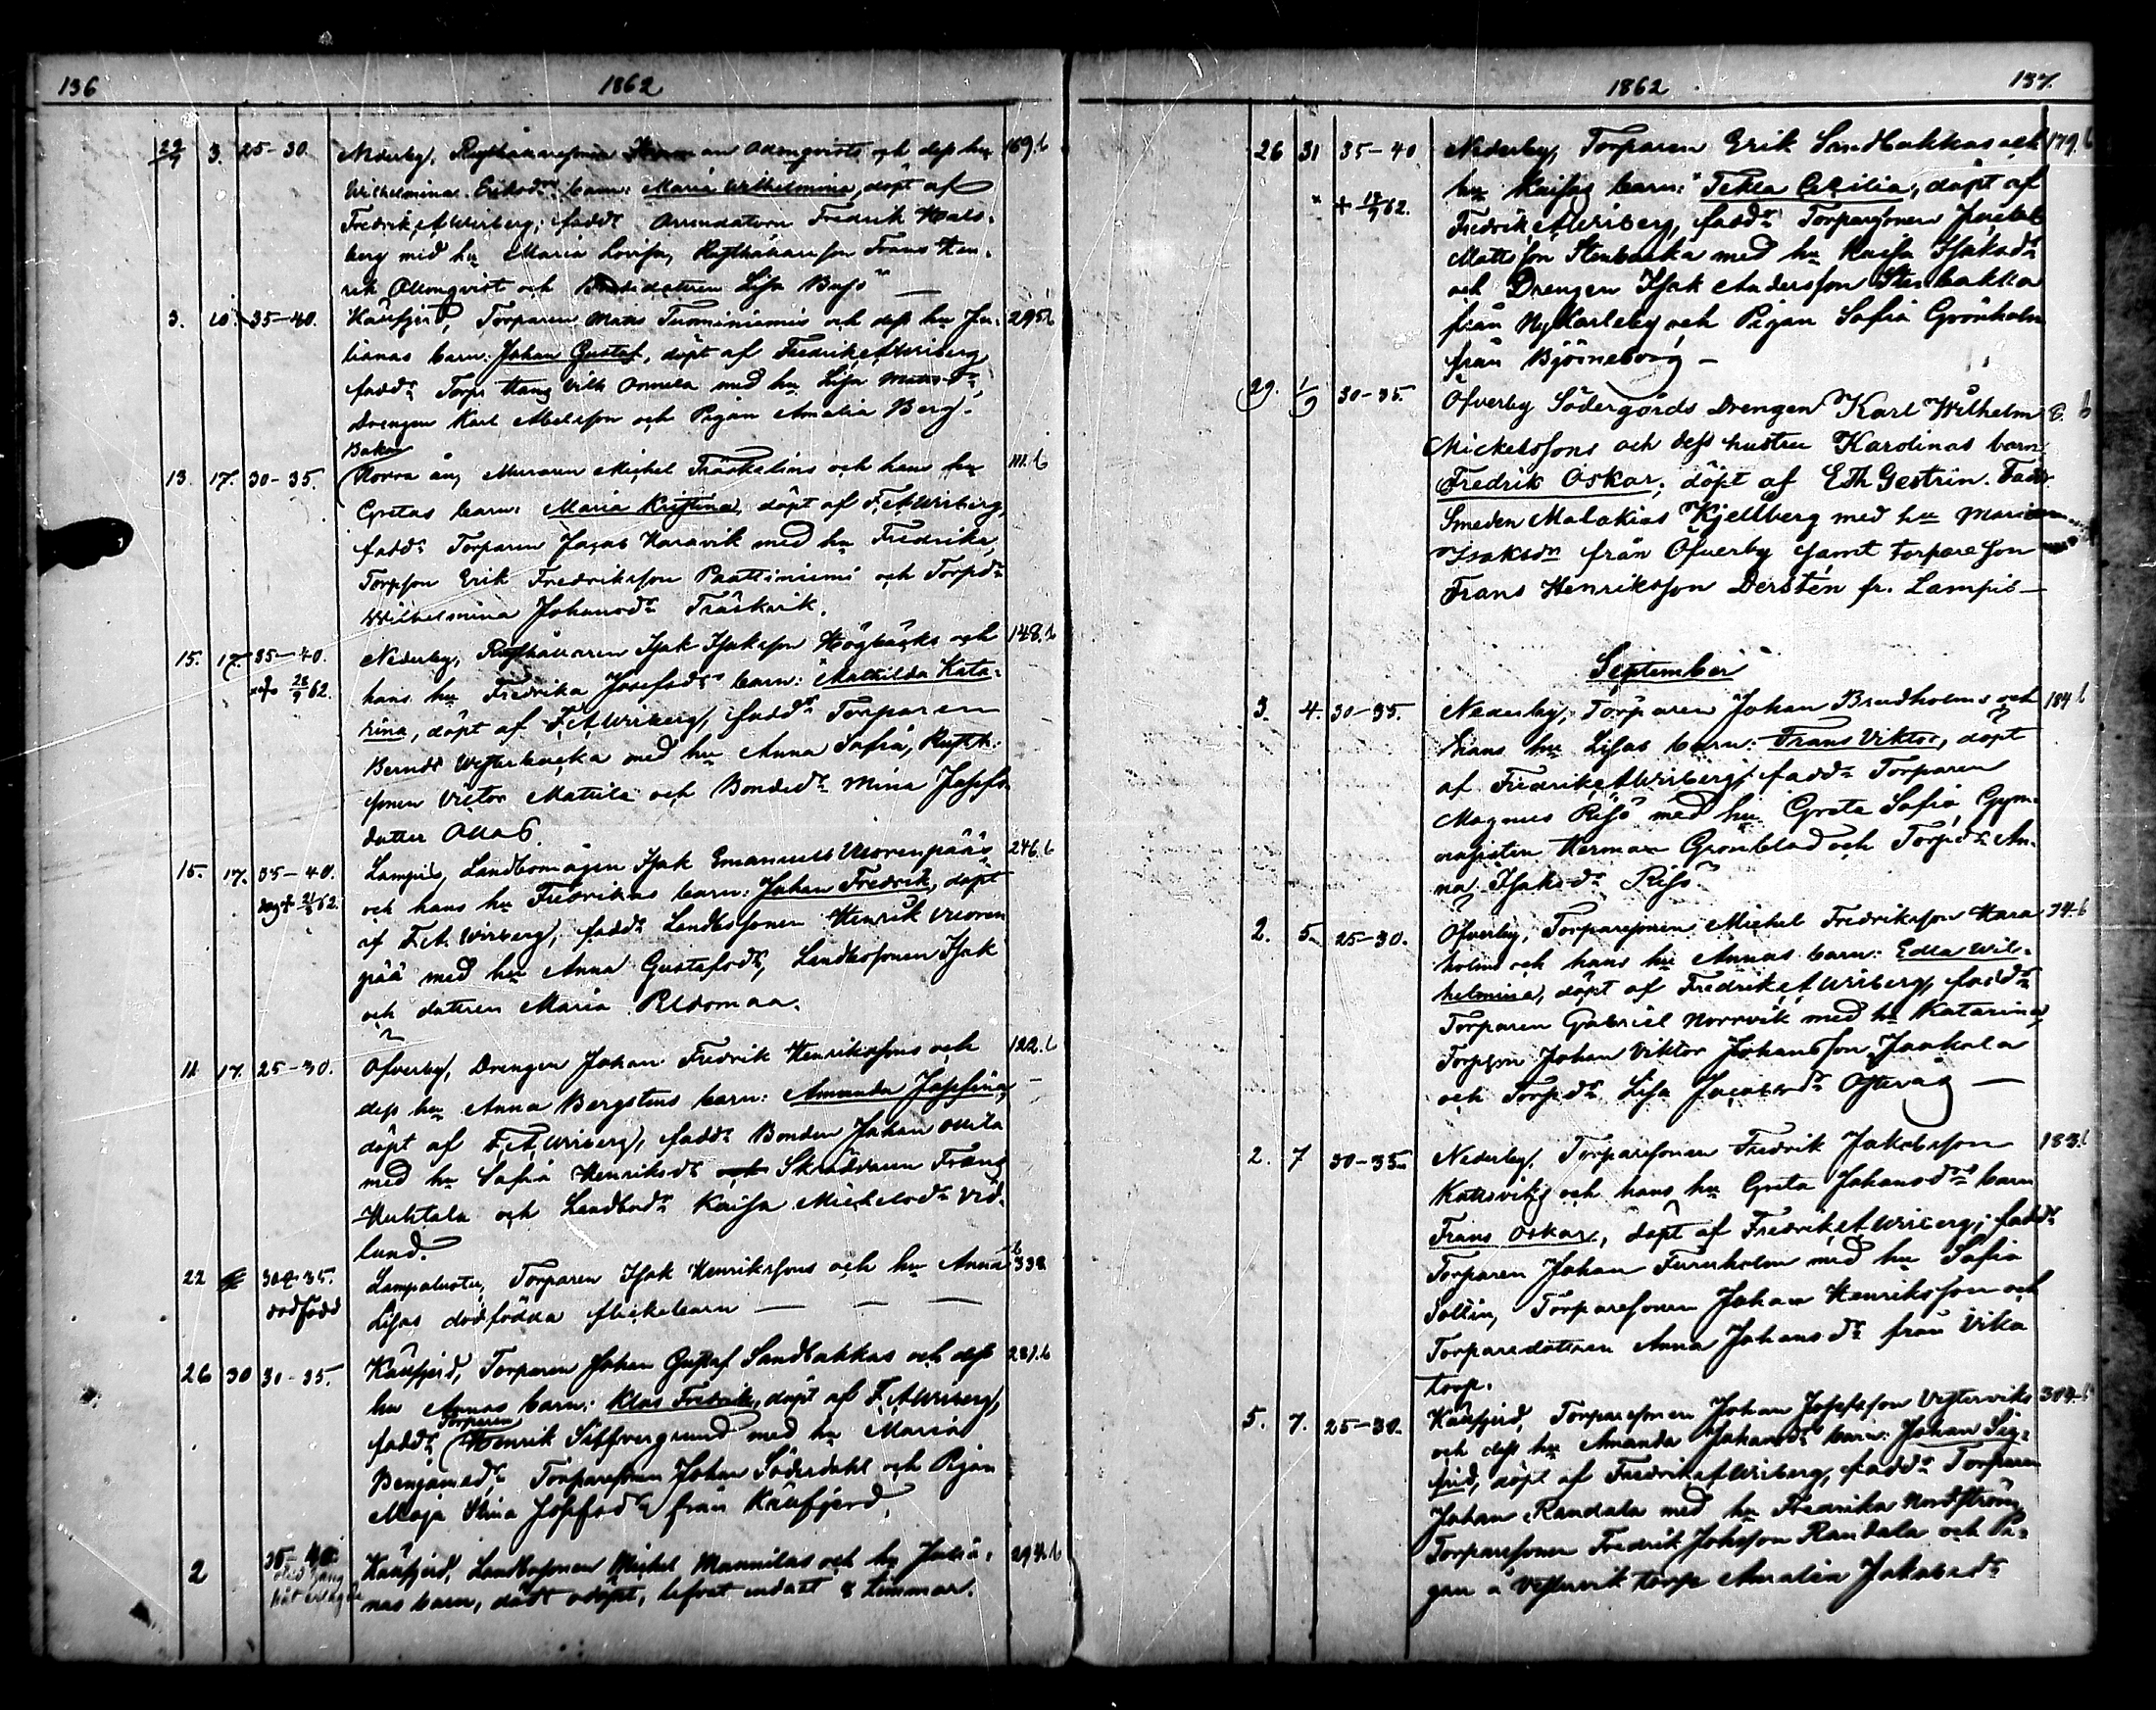 136
1862
22/7 3. 25-30. Nederby, Rusthållaresonen an Ollonqvists och dess hu 169.b
Wilhelmina Eriksdrs barn: Maria Wilhelmina, döpt af
Fredrik A Wriberg; faddr Arrendatorn Fredrik Hals-
berg med hu Maria Lovisa, Rusthållareson Frans Hen-
rik Ollonqvist och Lisa
3. 10. 35-40. Käufjerd, Torparen Mats Tuominiemis och dess hu Ju- 295.b
lianas barn: Johan Gustaf, döpt af Fredrik A Wriberg
faddr Torp. Hans Vilh Onnela med hu Lisa Matsdr,
Drengen Karl Abelsson och Pigan Amalia Berg-
Backa
13. 17. 30-35. Norra ån, Muraren Michel Träskelins och hans hu 111.b
Gretas barn: Maria Kristina, döpt af F. A Wriberg,
faddr Torparen Jacob Haravik med hu Fredrika,
Torpson Erik Fredriksson Paattiniemi och Torpdr
Wilhelmina Johansdr Träskvik.
15. 17. 35-40. Nederby, Rusthållaren Isak Isaksson Högbacks och 148.b
+ 28/9 62. hans hu Fredrika Josefsdrs barn: Mathilda Kata-
rina, döpt af F. A Wriberg, faddr Torparen
Berndt Westerbacka med hu Anna Sofia, Rusth.
sonen Victor Mattila och Bondedr Mina Josefs
dotter Ollas.
15. 17. 35-40. Lampis, Landbomågen Isak Emanuels Vuorenpääs 246.b
och hans hu Fredrikas barn: Johan Fredrik, döpt
af F. A. Wriberg; faddr Landbosonen Henrik Vuoren
pää med hu Anna Gustafsdr, Landbosonen Isak
och dotteren Maria Uldomaa.
11 17. 25-30. Öfverby, Drengen Johan Fredrik Henrikssons och 122.b
dess hu Anna Bergstens barn: Amanda Josefina,
döpt af F. A. Wriberg, faddr Bonden Johan Mila
med hu Sofia Henriksdr och Skräddaren Frans
Huhtala och Landbodr Kaisa Michelsdr Vid-
lund.
22 30-35. Lampaluoto, Torparen Isak Henrikssons och hu Anna 338 b
dödfödd Lisas dödfödda flickebarn — — —
26 30 30-35. Käufjerd, Torparen Johan Gustaf Sandbakkas och dess 281.b
hu Annas barn: Klas Fredrik, döpt af F. A Wriberg,
faddr Torparen Henrik Silfvergrund med hu Maria
Benjamsdr, Torparesonen Johan Söderdahl och Pigan
Maja Stina Josefsdr från Käufjerd.
2 35-40. Käufjerd, Landbosonen Michel Mannilas och hu Julia- 294.b
nas barn, dödt odöpt, lefvat endast 8 timmar.
1862
137.
26 31 35-40 Nederby, Torparen Erik Sandbakkas och 179.b
+ 17/9 62. hu Kaisas barn: Tekla Cecilia, döpt af
Fredrik A Wriberg, faddr Torparsonen Jacob
Mattsson Stenbacka med hu Kaisa Isaksdr
och Drengen Isak Andersson Stenbakka
från Ny Karleby och Pigan Sofia Grönholm
från Björneborg —
29. 1/9 30-35. Öfverby Södergårds Drengen Karl Wilhelm 8. b
Mickelssons och dess hustru Karolinas barn
Fredrik Oskar; döpt af E Th Gestrin. Faddr
Smeden Malakias Kjellberg med hu Maria
Isaksdr från Öfverby samt torpareson
Frans Henriksson Dersten fr. Lampis —
September
3. 4. 30-35. Nederby, Torparen Johan Bredholms och 184 b
hans hu Lisas barn: Frans Viktor, döpt
af Fredrik A Wriberg; faddr Torparen
Magnus Risö med hu Greta Sofia, Gym-
nasisten Herman Grönblad och Torpdr An-
na Isaksdr Risö
2. 5. 25-30. Öfverby, Torparesonen Michel Fredriksson Hara 34.b
holms och hans hu Annas barn: Edla Wil-
helmina, döpt af Fredrik A Wriberg, faddr
Torparen Gabriel Norrvik med hu Katarina,
Torpson Johan Viktor Johansson Jaakola
och Torpdr Lisa Jacobsdr Osterås —
2. 7 30-35. Nederby, Torparesonen Fredrik Jakobsson 183.b
Kattsviks och hans hu Greta Johansdrs barn
Frans Oskar, döpt af Fredrik A Wriberg; faddr
Torparen Johan Furuholm med hu Sofia
Sollin, Torparesonen Johan Henriksson och
Torparedotteren Anna Johansdr från Vika
torp.
5. 7. 25-30. Käufjerd, Torparesonen Johan Josefsson Vesterviks 304.b
och dess hu Amanda Johansdrs barn: Johan Sig-
frid, döpt af Fredrik A Wriberg, faddr Torparen
Johan Randala med hu Fredrika Nordström
Torparesonen Fredrik Johsson Randala och Pi-
gan å Vestervik torp Amalia Jakobsdr